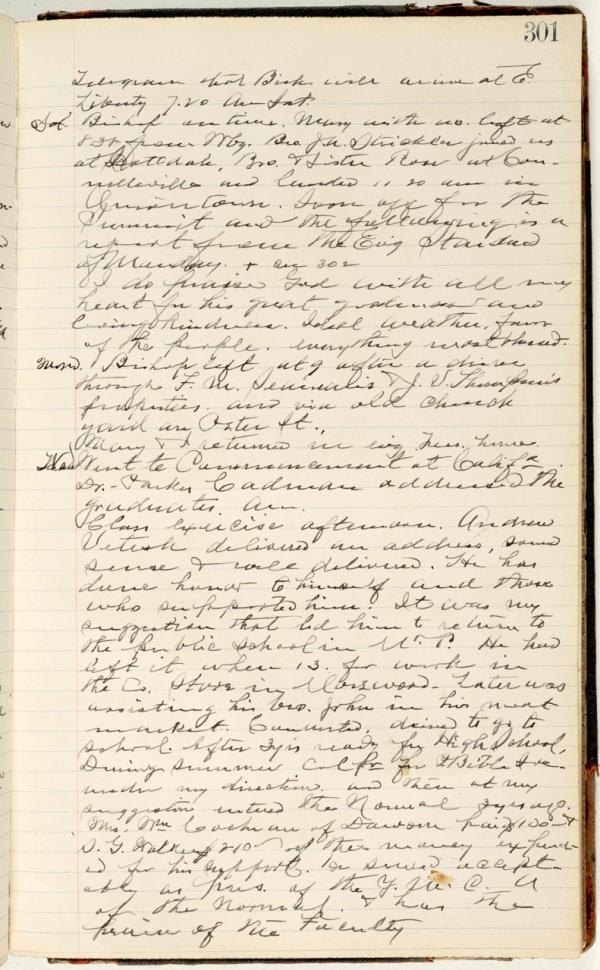 301
Telegram that Bish. will arrive at E.
Liberty 7.20 Am Sat.
Sat. Bishop on time. Mary with us. left at
8 38 from Wbg. Bro. J.A. Strickler joined us
at Scottdale, Bro. & Sister Rose at Con-
nellsville and landed 11 20 am in
Uniontown. Soon off for the
Summit and the following is a
report from the Evg Standard
of Monday. + on 302
I do praise God with all my
heart for his great goodness and
loving kindness. Ideal weather, favor
of the people. everything most blessed.
Mond. Bishop left at 9 after a drive
through F. M. & J. V. Thompson's
properties. and via old church
yard on St.,
Mary & I returned in evg Tues. home.
Went to Commencement at Califa.
Dr. Parkes Cadman addressed the
graduates. am.
Class exercise afternoon. Andrew
delivered an address, good
sense & well delivered. He has
done honor to himself and those
who supported him. It was my
suggestion that led him to return to
the public school in Mt. P. He had
left it when 13. for work in
the Co. Store in Morewood. Later was
assisting his bro. John in his meat
market. Converted, desired to go to
school. After 3 yrs ready for High School,
During summer Colpr for
under my direction. and then at my
suggestion entered the Normal yrs ago.
Mrs. Wm Cochran of Dawson paid 100 &
S. G. 210 of the money expend-
ed for his support. He served accept-
ably as pres. of the Y. M. C. A
of the Normal. & has the
praise of the Faculty